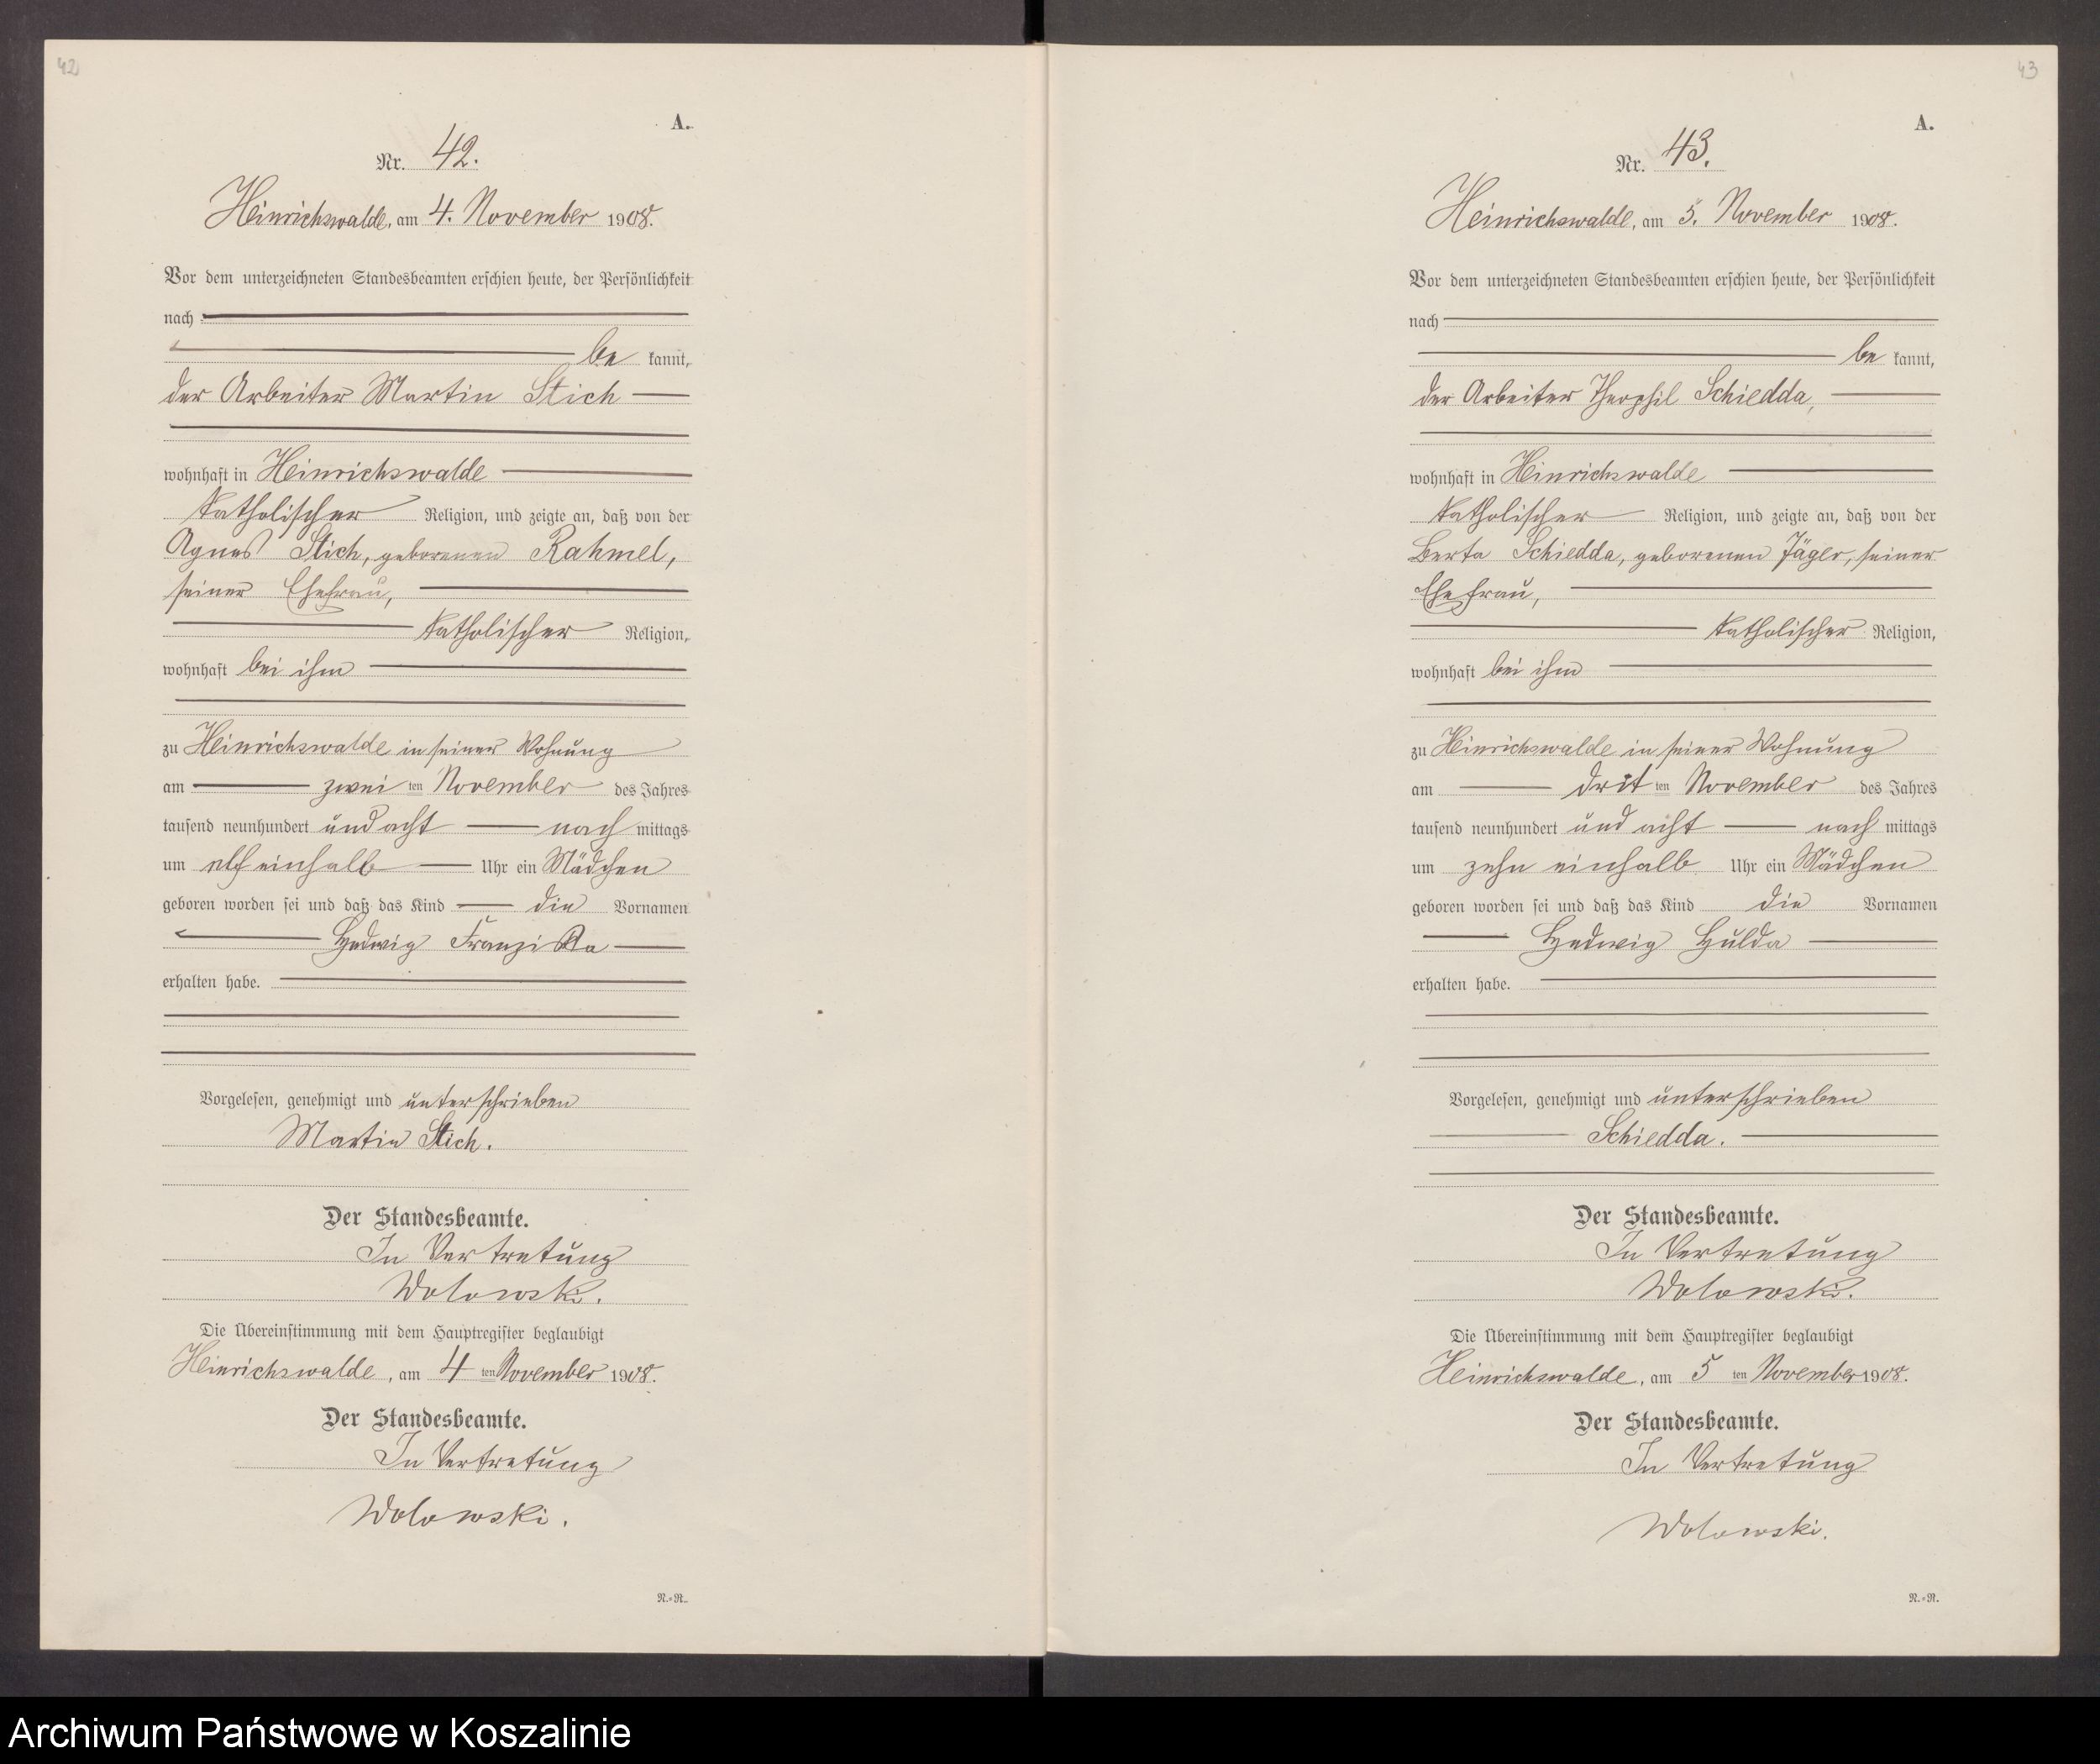 42
A.
Nr. 42.
Heinrichswalde, am 4. November 1908.
Vor dem unterzeichneten Standesbeamten erschien heute, der Persönlichkeit
nach
be kannt,
der Arbeiter Martin Stich
wohnhaft in Heinrichswalde
katholischer Religion, und zeigte an, daß von der
Agnes Stich, geborenen Rahmel,
seiner Ehefrau,
katholischer Religion,
wohnhaft bei ihm
zu Heinrichswalde in seiner Wohnung
am zwei ten November des Jahres
tausend neunhundert und acht nach mittags
um elf einhalb Uhr ein Mädchen
geboren worden sei und daß das Kind die Vornamen
Hedwig Franziska
erhalten habe.
Vorgelesen, genehmigt und unterschrieben
Martin Stich.
Der Standesbeamte.
In Vertretung
Wolowski.
Die Übereinstimmung mit dem Hauptregister beglaubigt
Heinrichswalde, am 4 ten November 1908.
Der Standesbeamte.
In Vertretung
Wolowski.
N.=R.
43
A.
Nr. 43.
Heinrichswalde, am 5. November 1908.
Vor dem unterzeichneten Standesbeamten erschien heute, der Persönlichkeit
nach
be kannt,
der Arbeiter Theophil Schiedda,
wohnhaft in Heinrichswalde
katholischer Religion, und zeigte an, daß von der
Berta Schiedda, geborenen Jäger, seiner
Ehefrau,
katholischer Religion,
wohnhaft bei ihm
zu Heinrichswalde in seiner Wohnung
am drit ten November des Jahres
tausend neunhundert und acht nach mittags
um zehn einhalb Uhr ein Mädchen
geboren worden sei und daß das Kind die Vornamen
Hedwig Hulda
erhalten habe.
Vorgelesen, genehmigt und unterschrieben
Schiedda.
Der Standesbeamte.
In Vertretung
Wolowski.
Die Übereinstimmung mit dem Hauptregister beglaubigt
Heinrichswalde, am 5 ten November 1908.
Der Standesbeamte.
In Vertretung
Wolowski.
N.=R.
Archiwum Państwowe w Koszalinie